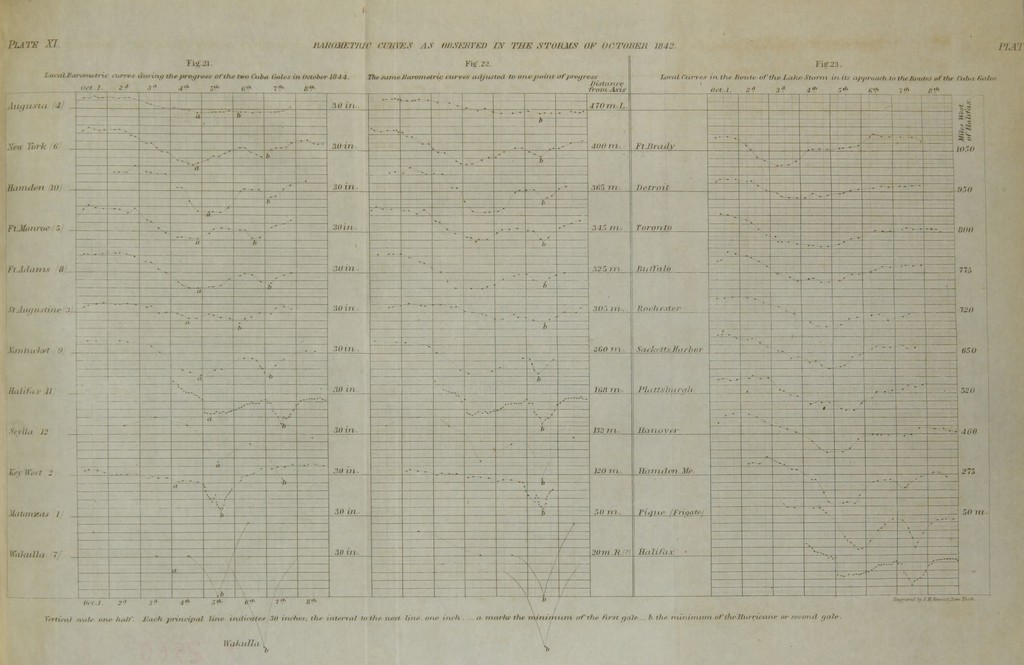 PLATE XI.
BAROMETRIC CURVES AS OBSERVED IN THE STORMS OF OCTOBER 1842.
PLAT
Fig. 21.
Local Barometric curves during the progress of the two Cuba Gales in October 1844.
Oct. 1. 2d 3d 4th 5th 6th 7th 8th
Fig. 22.
The same Barometric curves adjusted to one point of progress
Distance
from Axis
Fig. 23.
Local Curves in the Route of the Lake Storm in its approach to the Routes of the Cuba Gales
Oct. 1. 2d 3d 4th 5th 6th 7th 8th
Miles West
of Halifax.
Augusta (4) 30 in. 470 m. L.
New York (6) 30 in. 400 m. Ft. Brady 1050
Hamden (10) 30 in. 365 m. Detroit 950
Ft. Monroe (5) 30 in. 345 m. Toronto 800
Ft. Adams (8) 30 in. 325 m. Buffalo 775
St. Augustine (3) 30 in. 305 m. Rochester 720
Nantucket (9) 30 in. 260 m. Sacketts Harbor 650
Halifax 11 30 in. 168 m. Plattsburgh 520
Scylla 12 30 in. 132 m. Hanover 460
Key West 2 30 in. 120 m. Hamden Me. 275
Matanzas 1 30 in. 50 m. Pique (Frigate) 50 m.
Wakulla (7) 30 in. 20 m. R. Halifax
Oct. 1. 2d 3d 4th 5th 6th 7th 8th
Vertical scale one half. Each principal line indicates 30 inches; the interval to the next line, one inch. ... a. marks the minimum of the first gale ... b. the minimum of the Hurricane or second gale.
Wakulla b b